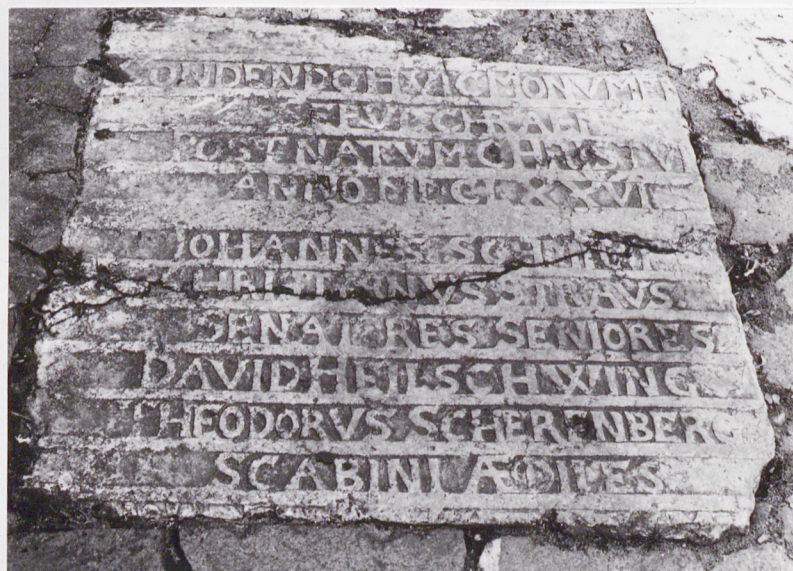 ONDENDO HVIC MONVMEN
SEPULCHRALE
POST NATVM CHRISTVM
ANNO M DC LXXVI
JOHANNES
CHRISTIANVS STRAVS
SENATORES SENIORES
DAVID HEILSCHWING
THEODORVS SCHERENBERG
SCABINI ÆDILES